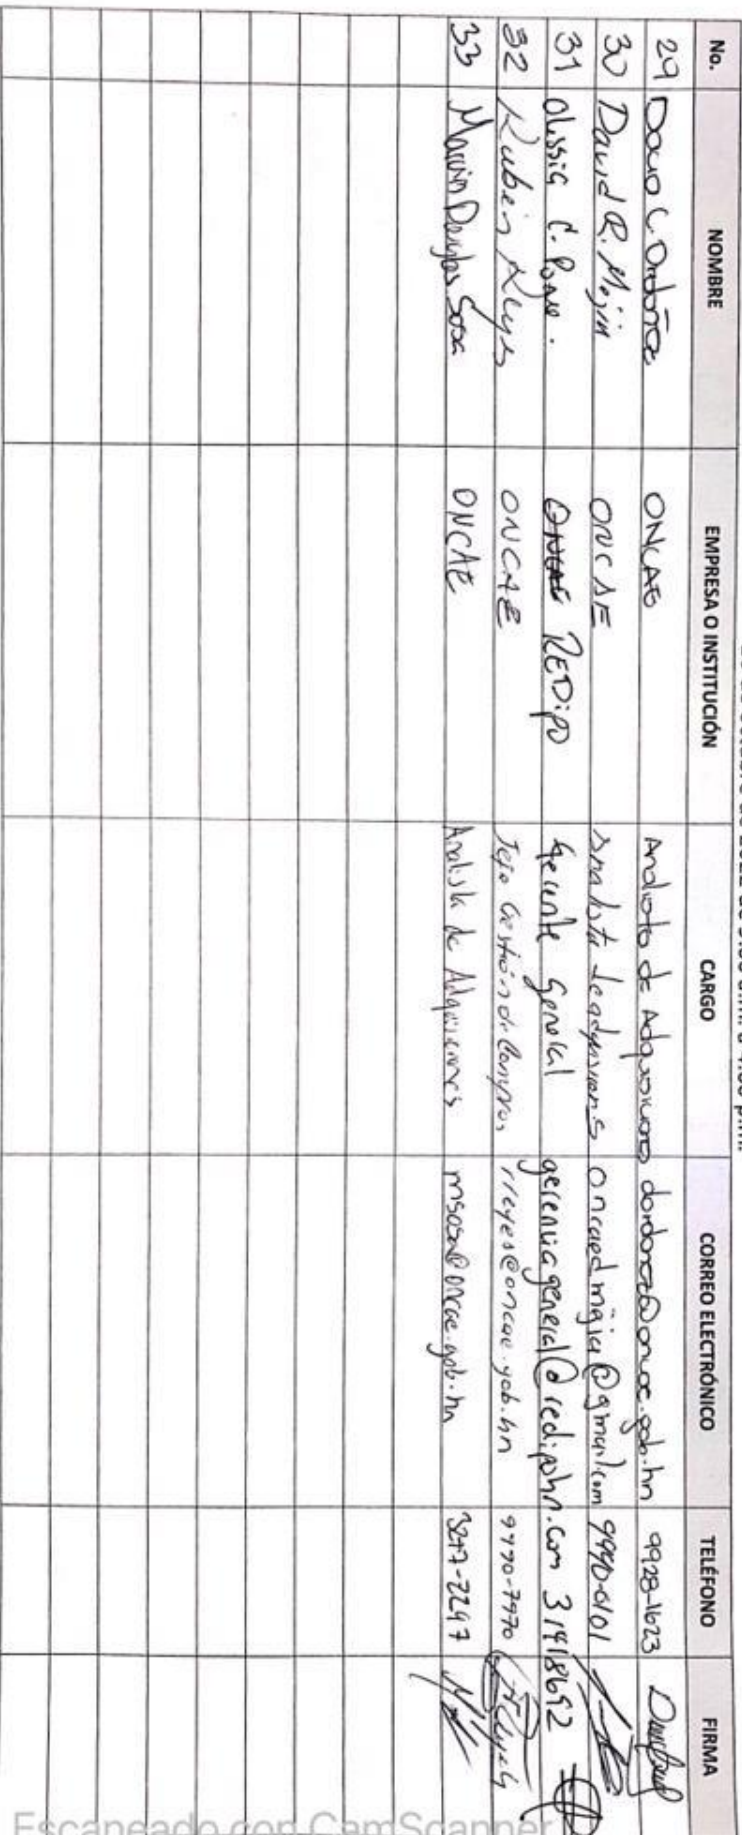 No. NOMBRE EMPRESA O INSTITUCIÓN CARGO CORREO ELECTRÓNICO TELÉFONO FIRMA
29 C. Ordoñez ONCAE de dordonez@oncae.gob.hn 9928-1623
30 David R. Mejia ONCAE Analista de oncaedmejia@gmail.com 9990-0101
31 C. Ponce. ONCAE REDipo Gerente General gerenciageneral@redipohn.com 31418692
32 Ruben Reyes ONCAE Jefe Gestión de Compras rreyes@oncae.gob.hn 9990-7970
33 Marvin Douglas Sosa ONCAE Analista de Adquisiciones msosa@oncae.gob.hn 3247-2297
Escaneado con CamScanner